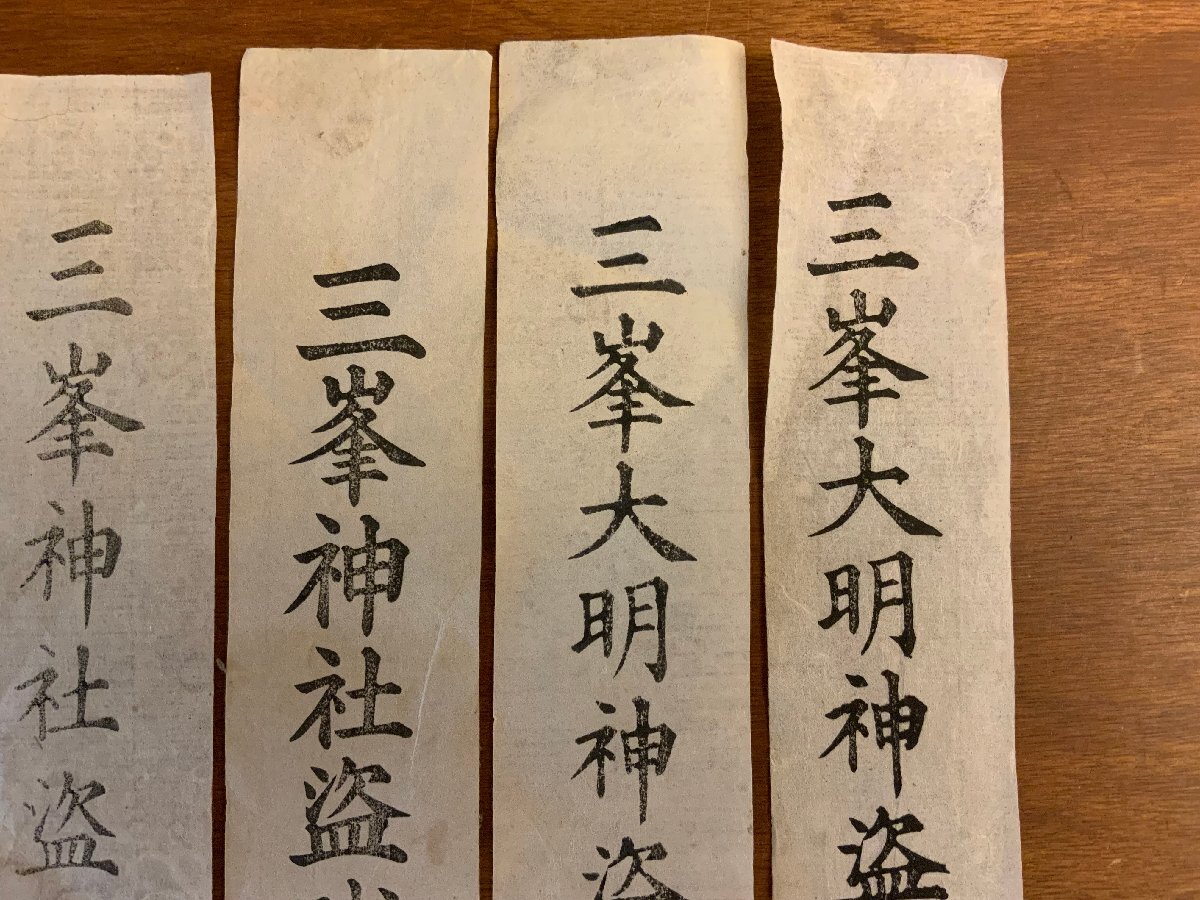 三峯大明神盗
三峯大明神盗
三峯神社盗
三峯神社盗